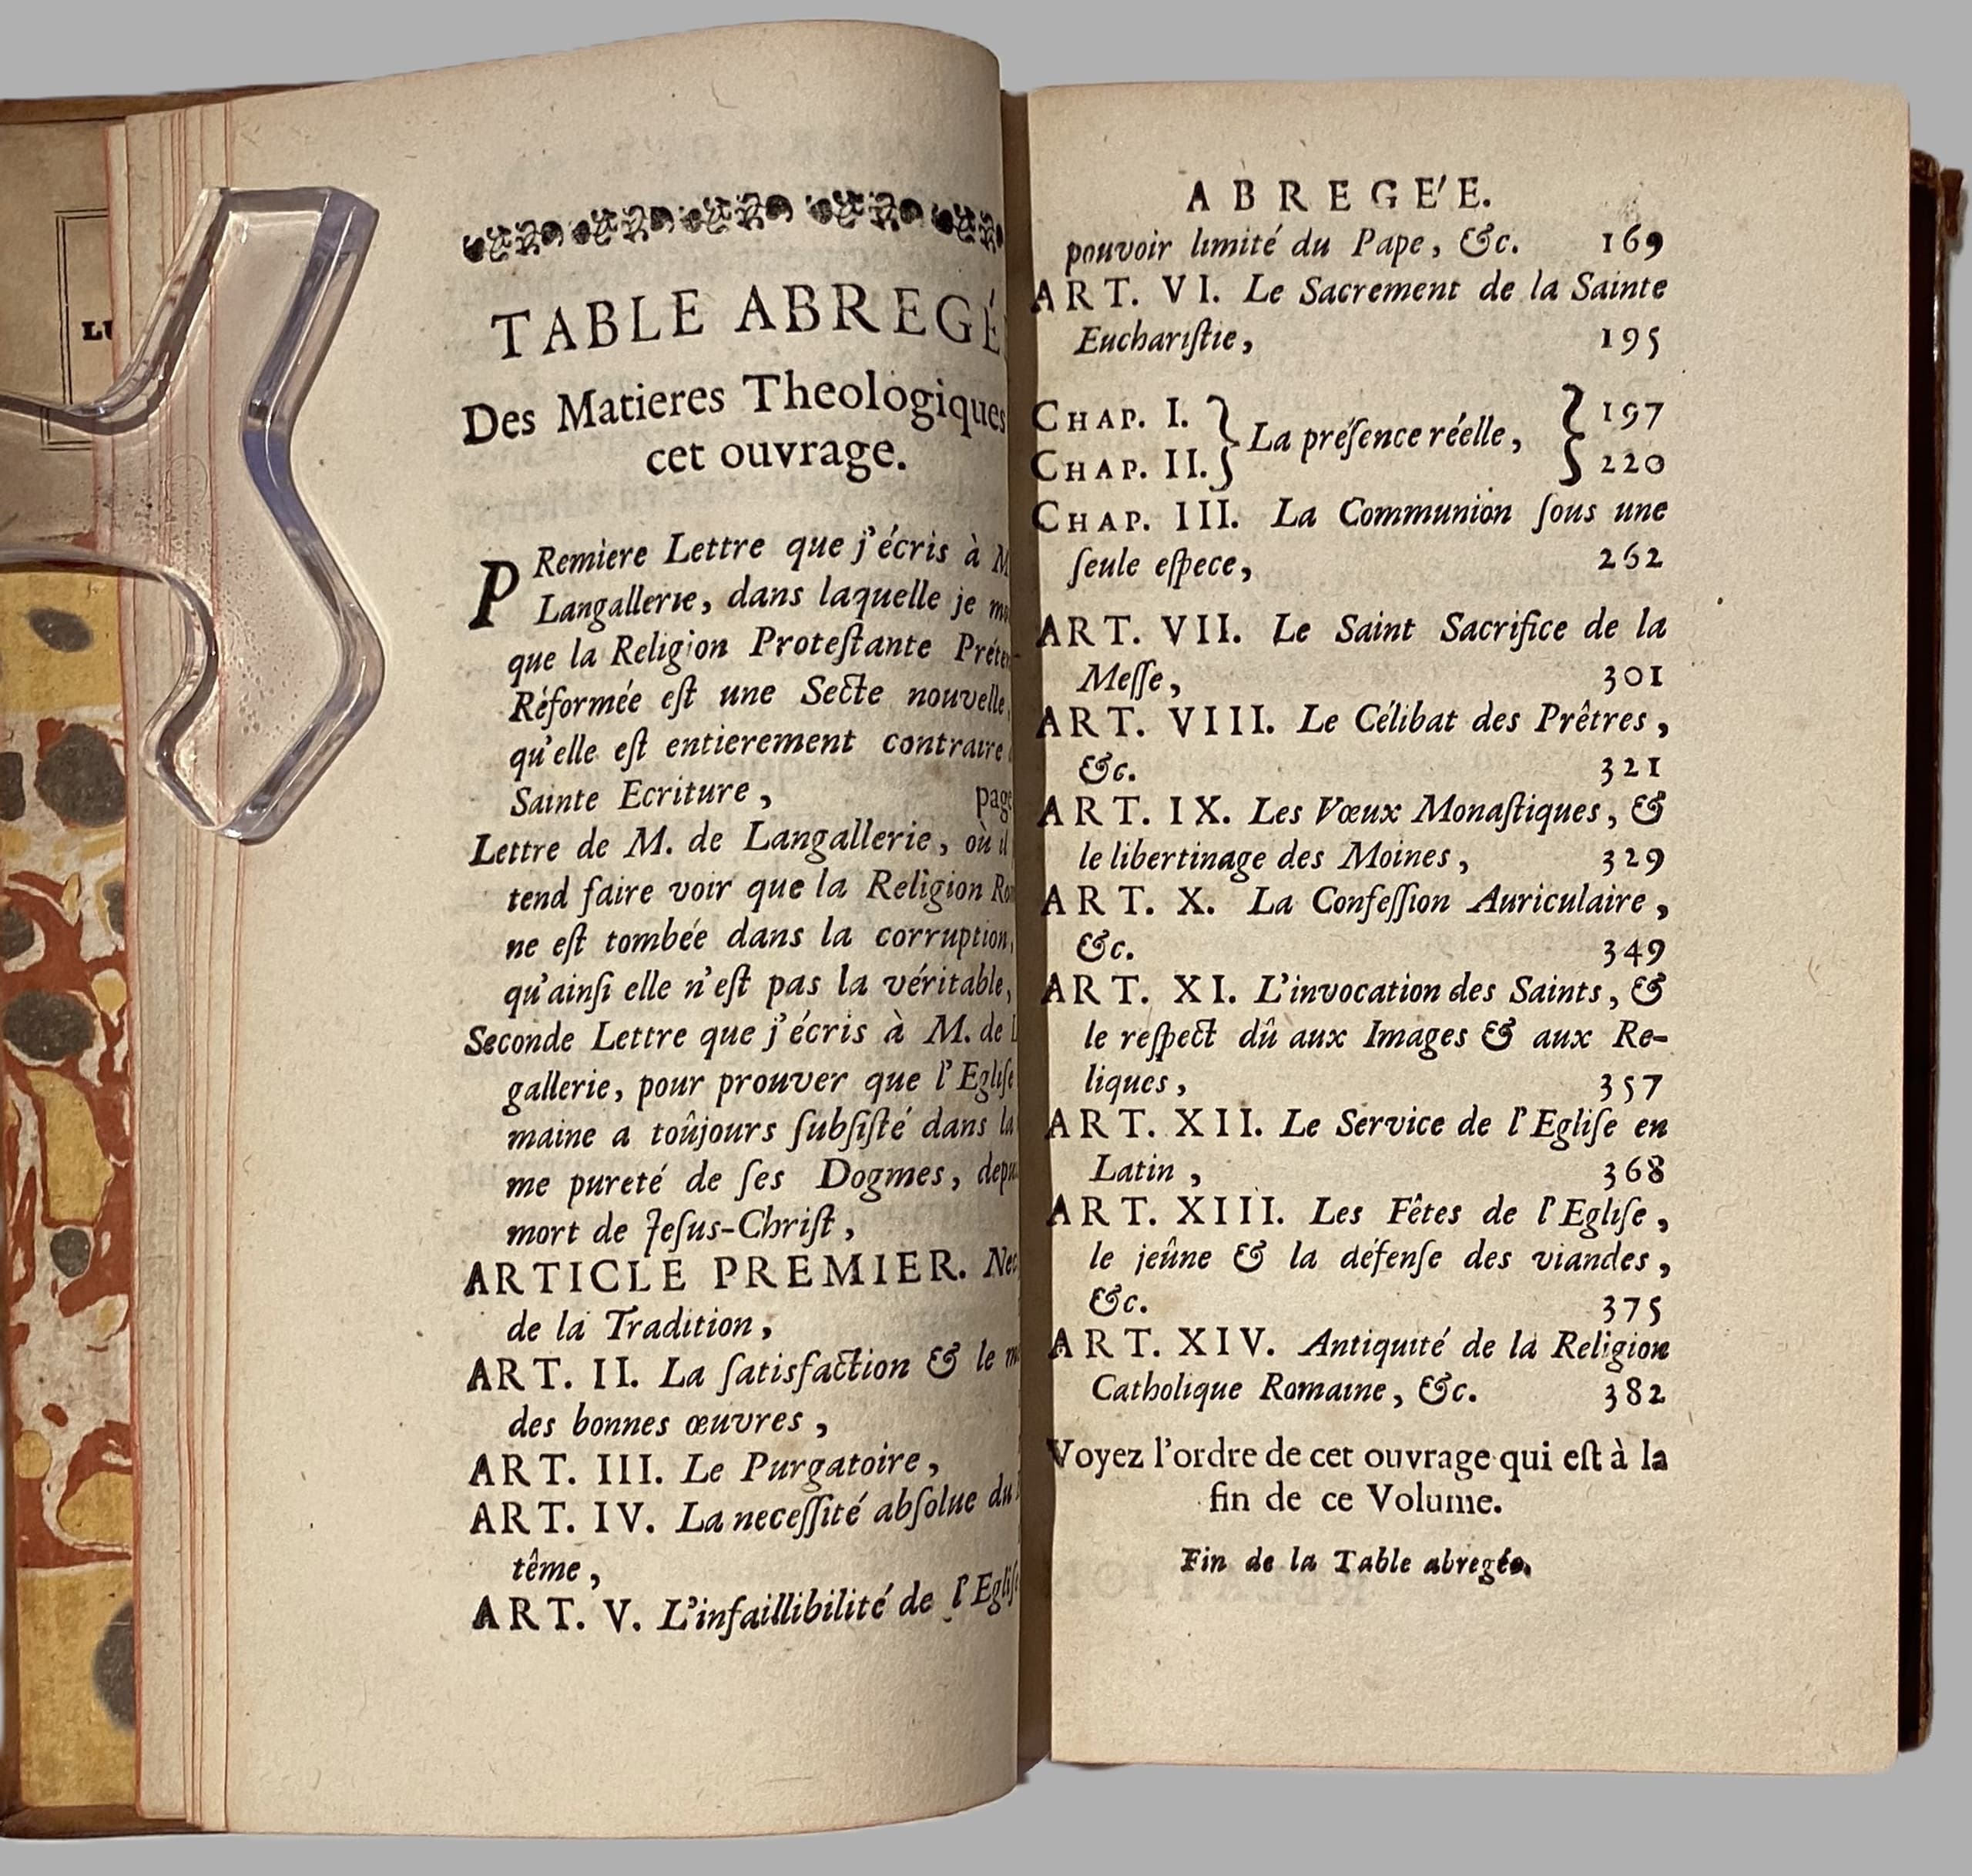 TABLE ABREGÉ
Des Matieres Theologiques
cet ouvrage.
PRemiere Lettre que j'écris à M
Langallerie, dans laquelle je
que la Religion Proteſtante
Réformée eſt une Secte nouvelle,
qu'elle eſt entierement contraire
Sainte Ecriture, page
Lettre de M. de Langallerie, où il
tend faire voir que la Religion
ne eſt tombée dans la corruption,
qu'ainſi elle n'eſt pas la véritable,
Seconde Lettre que j'écris à M. de
gallerie, pour prouver que l'Egliſe
maine a toûjours ſubſiſté dans la
me pureté de ſes Dogmes,
mort de Jeſus-Chriſt,
ARTICLE PREMIER.
de la Tradition,
ART. II. La ſatisfaction & le
des bonnes œuvres,
ART. III. Le Purgatoire,
ART. IV. La neceſſité abſolue du
tême,
ART. V. L'infaillibilité de l'Egliſe
ABREGE'E.
pouvoir limité du Pape, &c. 169
ART. VI. Le Sacrement de la Sainte
Euchariſtie, 195
CHAP. I. } La préſence réelle, } 197
CHAP. II. } 220
CHAP. III. La Communion ſous une
ſeule eſpece, 262
ART. VII. Le Saint Sacrifice de la
Meſſe, 301
ART. VIII. Le Célibat des Prêtres,
&c. 321
ART. IX. Les Vœux Monaſtiques, &
le libertinage des Moines, 329
ART. X. La Confeſſion Auriculaire,
&c. 349
ART. XI. L'invocation des Saints, &
le reſpect dû aux Images & aux Re-
liques, 357
ART. XII. Le Service de l'Egliſe en
Latin, 368
ART. XIII. Les Fêtes de l'Egliſe,
le jeûne & la défenſe des viandes,
&c. 375
ART. XIV. Antiquité de la Religion
Catholique Romaine, &c. 382
Voyez l'ordre de cet ouvrage qui eſt à la
fin de ce Volume.
Fin de la Table abregée.